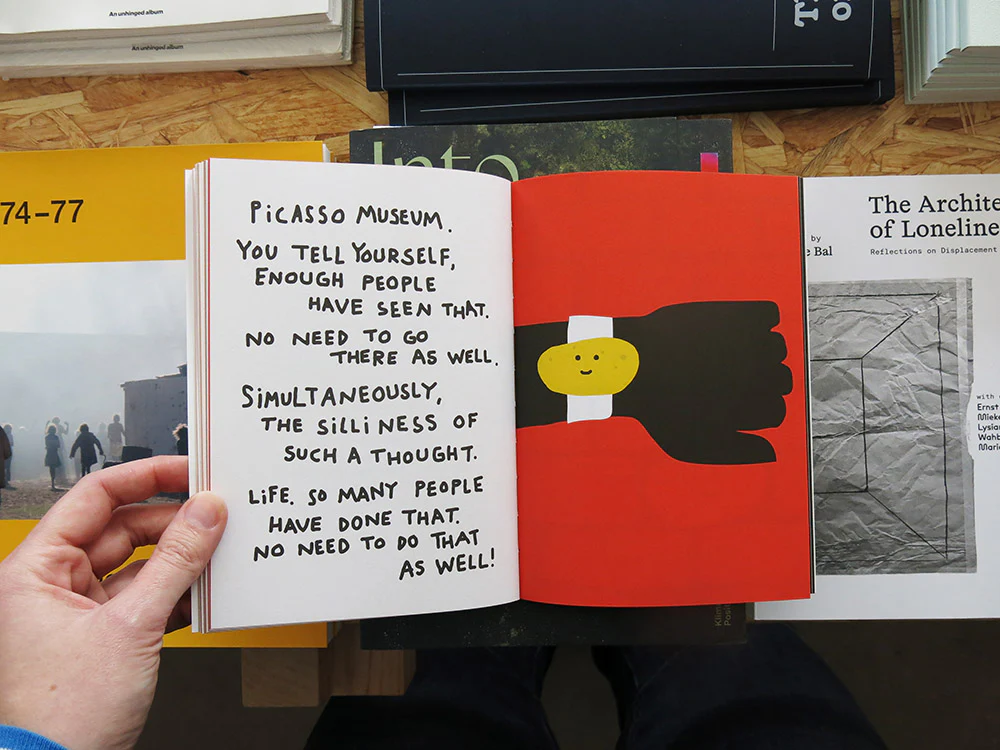 An unhinged album
An unhinged album
Into
74–77
PICASSO MUSEUM.
YOU TELL YOURSELF,
ENOUGH PEOPLE
HAVE SEEN THAT.
NO NEED TO GO
THERE AS WELL.
SIMULTANEOUSLY,
THE SILLINESS OF
SUCH A THOUGHT.
LIFE. SO MANY PEOPLE
HAVE DONE THAT.
NO NEED TO DO THAT
AS WELL!
The Archite
of Loneline
Reflections on Displacement
by
e Bal
with
Ernst
Mieke
Lysia
Wahb
Mari